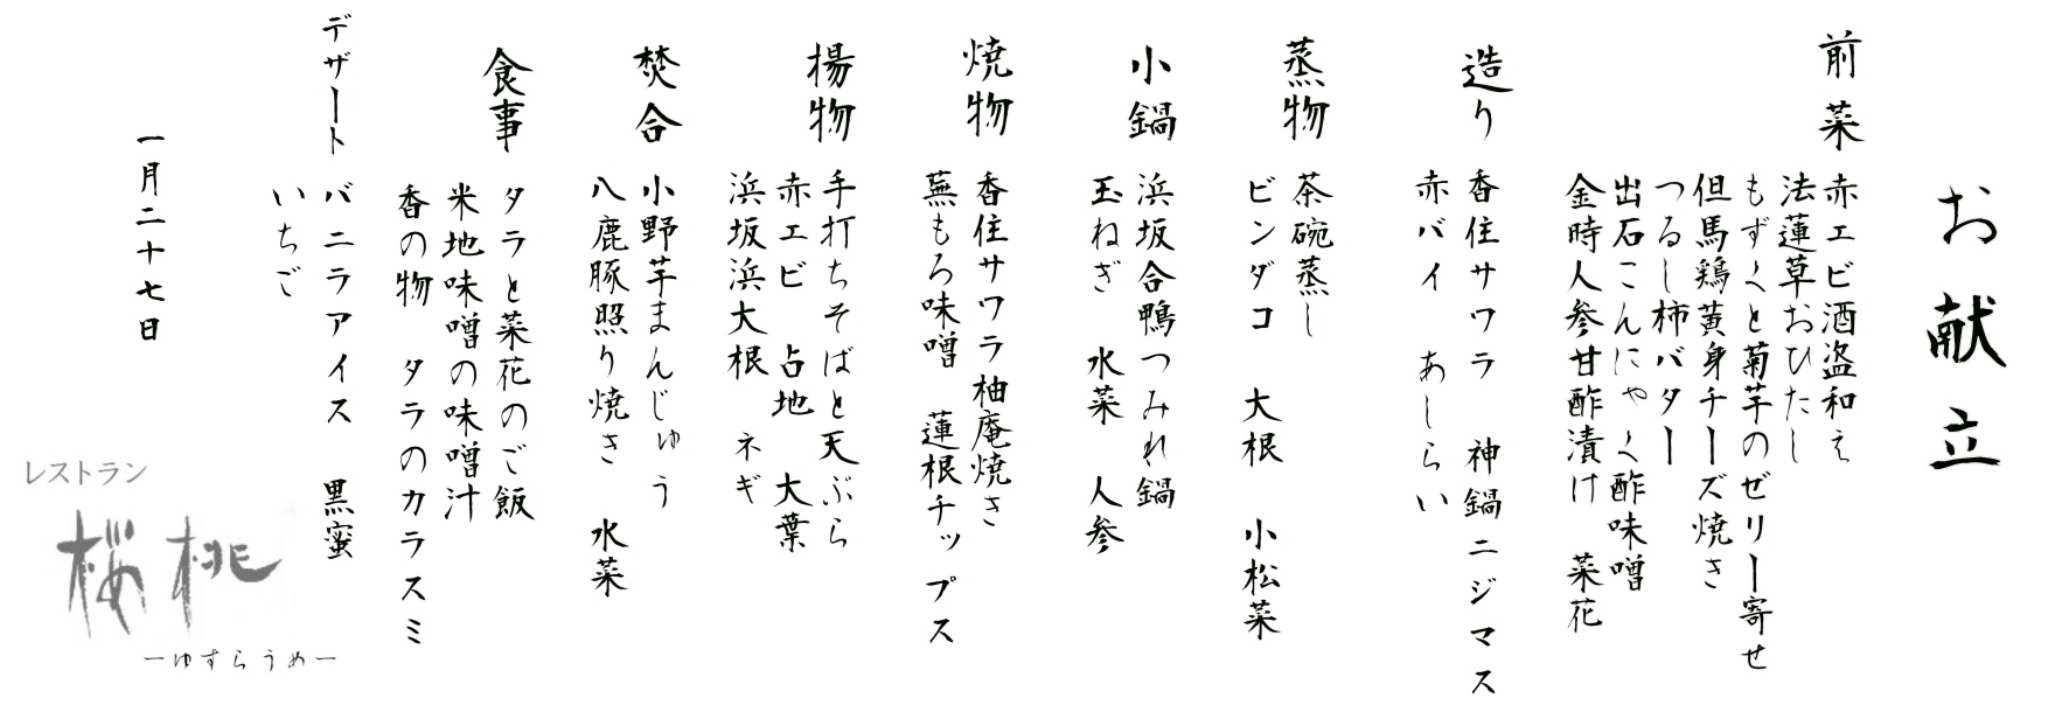 お献立
前菜
赤エビ酒盗和え
法蓮草おひたし
もずくと菊芋のゼリー寄せ
但馬鶏黄身チーズ焼き
つるし柿バター
出石こんにゃく酢味噌
金時人参甘酢漬け 菜花
造り
香住サワラ 神鍋ニジマス
赤バイ あしらい
蒸物
茶碗蒸し
ビンダコ 大根 小松菜
小鍋
浜坂合鴨つみれ鍋
玉ねぎ 水菜 人参
焼物
香住サワラ柚庵焼き
蕪もろ味噌 蓮根チップス
揚物
手打ちそばと天ぷら
赤エビ 占地 大葉
浜坂浜大根 ネギ
焚合
小野芋まんじゅう
八鹿豚照り焼き 水菜
食事
タラと菜花のご飯
米地味噌の味噌汁
香の物 タラのカラスミ
デザート
バニラアイス 黒蜜
いちご
一月二十七日
レストラン
桜桃
ーゆすらうめー